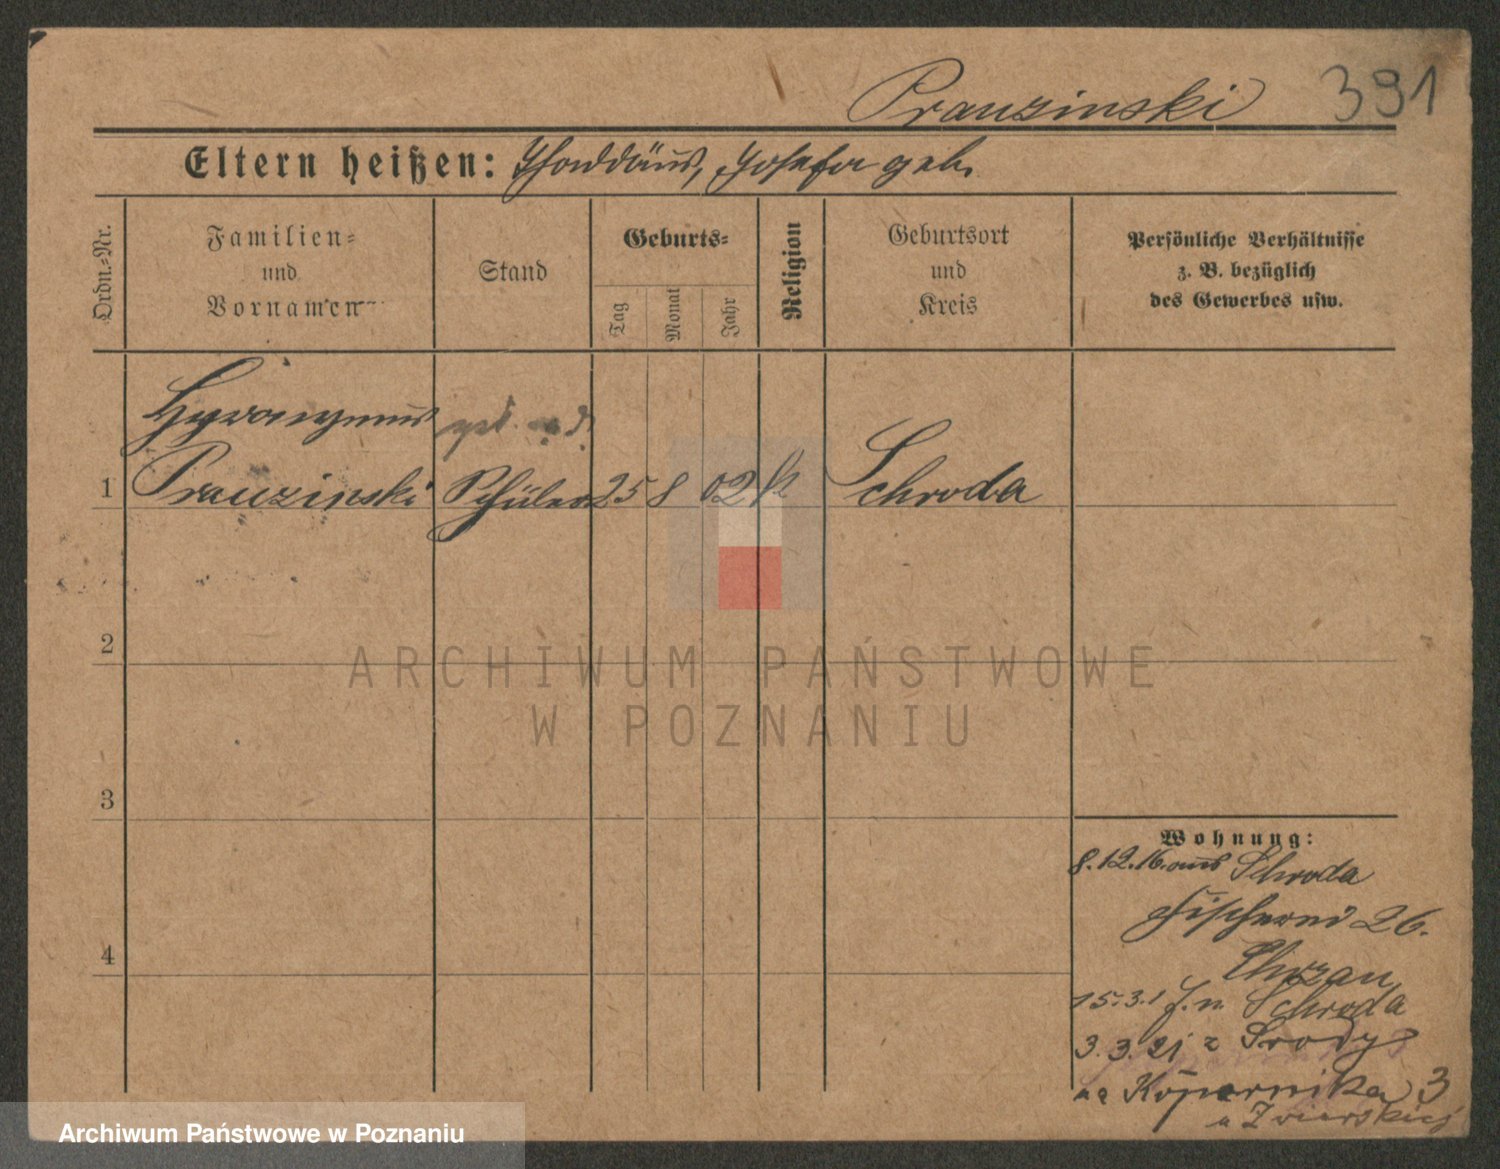 Pranzinski 391
Eltern heißen: Thaddäus, Josefa geb.
Ordn.-Nr.
Familien-
und
Vornamen
Stand
Geburts-
Tag
Monat
Jahr
Religion
Geburtsort
und
Kreis
Persönliche Verhältnisse
z. B. bezüglich
des Gewerbes usw.
Hyronymus
1 Pranzinski Schüler 25 8 02 k Schroda
2
3
4
Wohnung:
8.12.16. aus Schroda
Fischerei 26.
Chrzan
15.3.1 n. Schroda
3.3.21 z Środy
na Kopernika 3
u Zwierskiej
ARCHIWUM PAŃSTWOWE
W POZNANIU
Archiwum Państwowe w Poznaniu